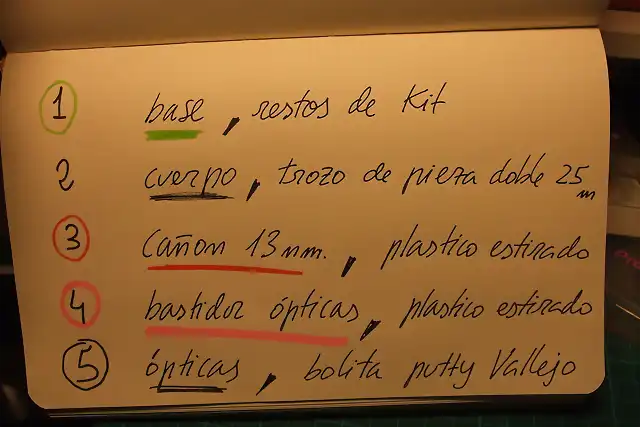 1 base, restos de Kit
2 cuerpo, trozo de pieza doble 25 m
3 Cañon 13 mm., plastico estirado
4 bastidor ópticas, plastico estirado
5 ópticas, bolita putty Vallejo